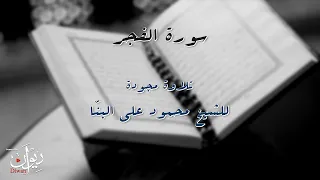 سورة الفجر
تلاوة مجودة
للشيخ محمود على البنّا
ديوان
Diwan